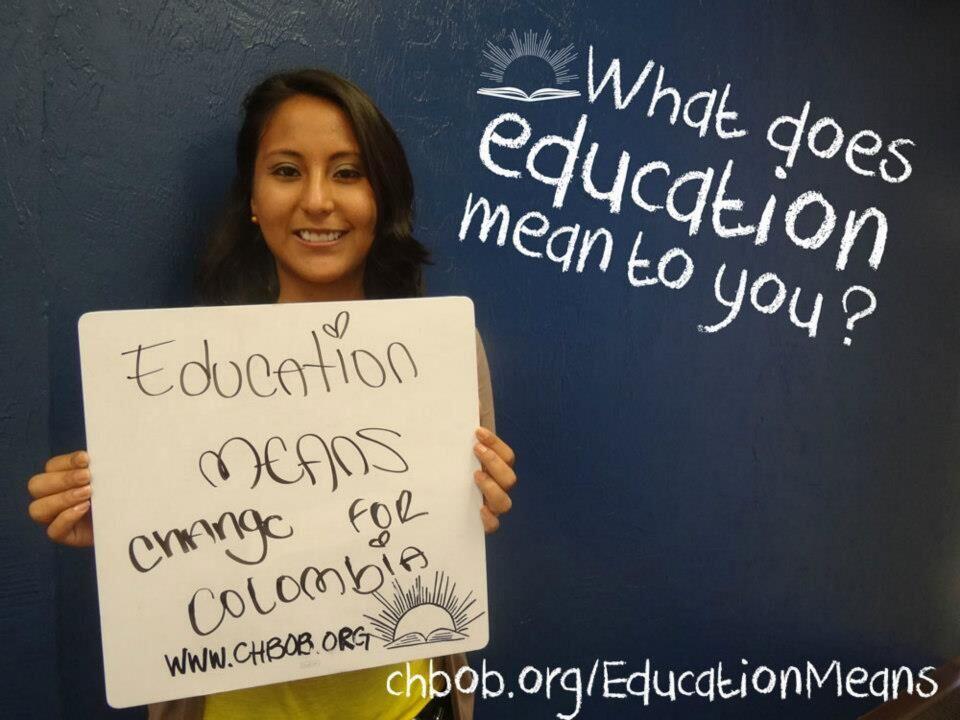 What does
education
mean to you?
Education
means
change for
Colombia
www.CHBOB.ORG
chbob.org/EducationMeans